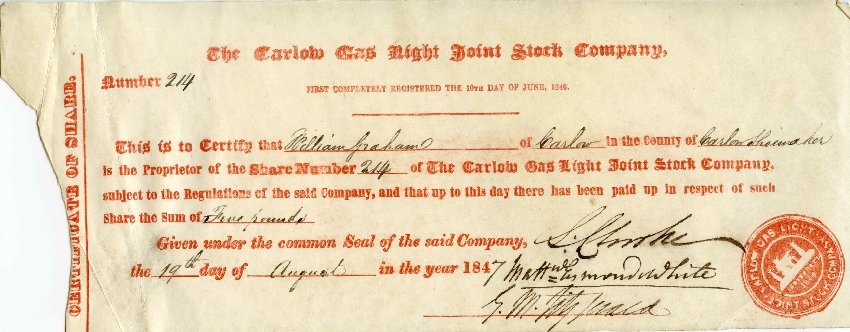 The Carlow Gas Light Joint Stock Company,
Number 214
FIRST COMPLETELY REGISTERED THE 10TH DAY OF JUNE, 1846.
CERTIFICATE OF SHARE.
This is to Certify that William Graham of Carlow in the County of Carlow Shoemaker
is the Proprietor of the Share Number 214 of The Carlow Gas Light Joint Stock Company,
subject to the Regulations of the said Company, and that up to this day there has been paid up in respect of such
Share the Sum of Five pounds
Given under the common Seal of the said Company,
the 19th day of August in the year 1847
White
G. M. Fitzgerald
GAS LIGHT JOINT STOCK COMPANY